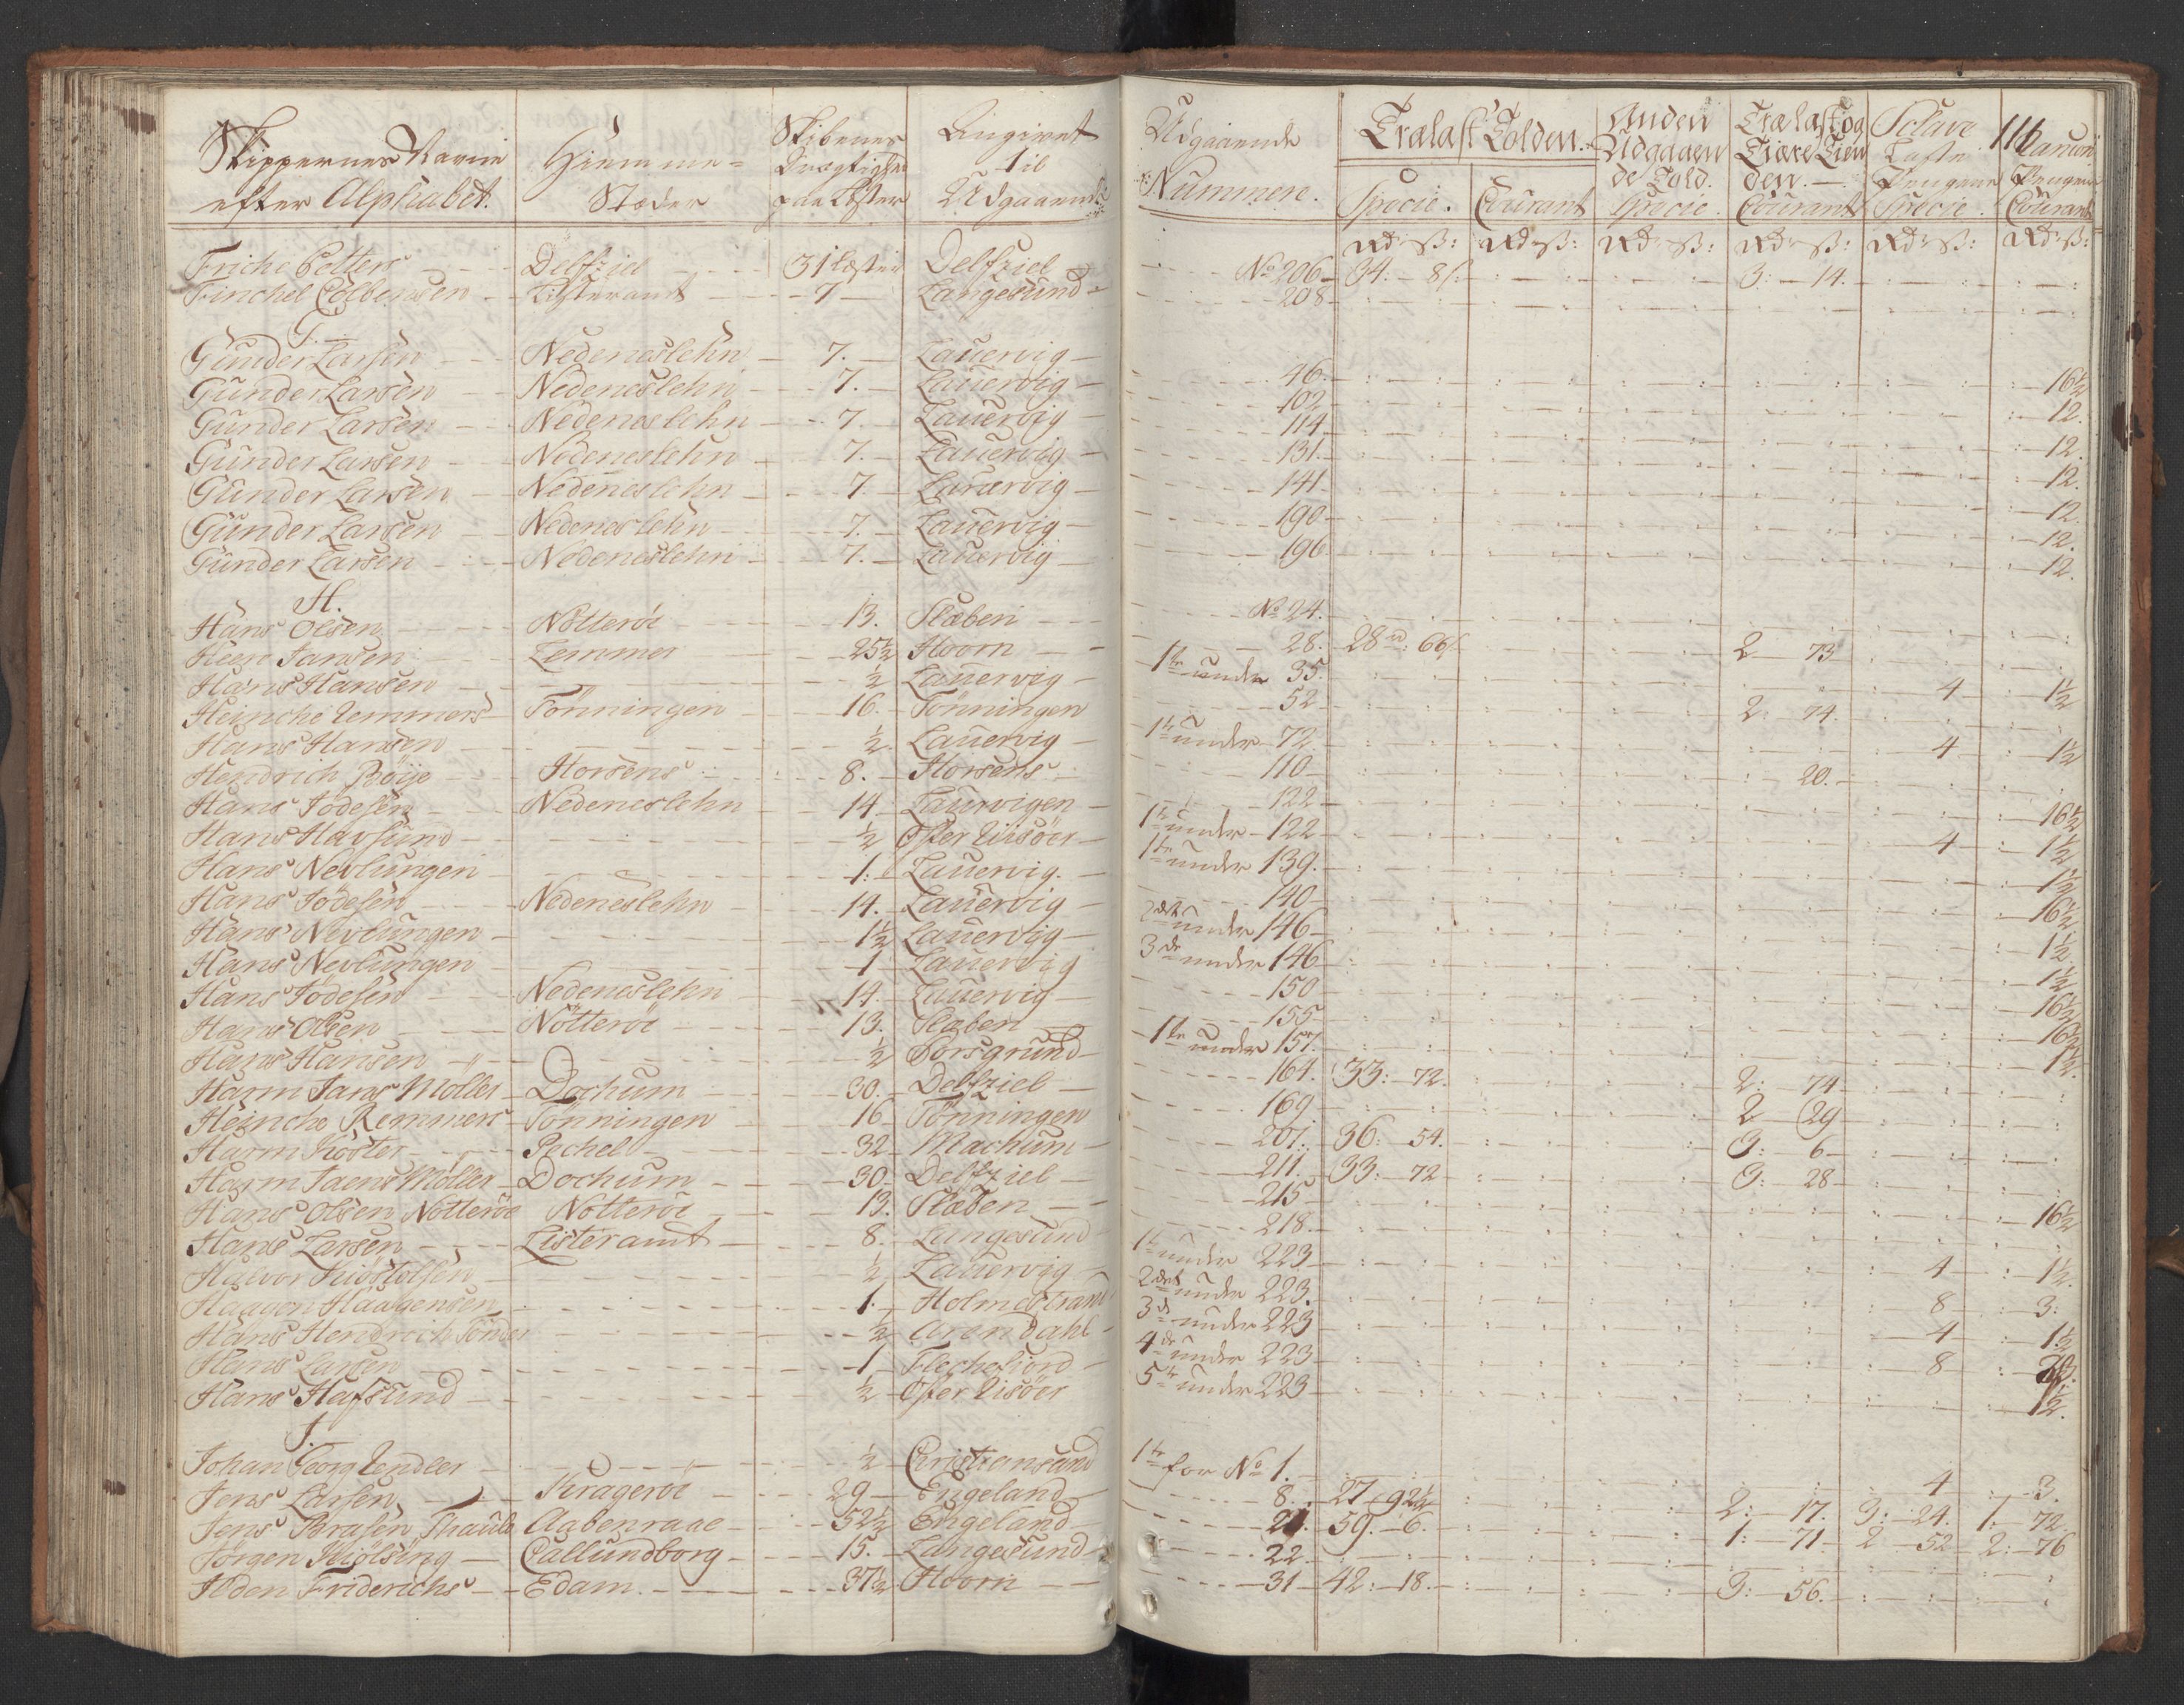 Skippernes Navne efter Alphabet. Hiemme= Stæder Skibenes Drægtighed paa Læster Angivet til Udgaaende Udgaaende Nummere. Trælast Tolden. Specie. Courant Anden Udgaaende Told. Specie. Trælast og Tiære Tienden. Courant Sclave Kasse Pengene Specie. 116 Pengene Courant
Rdr ß: Rdr ß: Rdr ß: Rdr ß: Rdr ß: Rdr ß:
Friche Petters Delfziel 31 Læster Delfziel No 206 34. 8ß 3: 14.
Finchel Colbensen Listeramt 7 Langesund 208
G.
Gunder Larsen Nedeneslehn 7. Lauervig 46. 16½
Gunder Larsen Nedeneslehn 7. Lauervig 102 12.
Gunder Larsen Nedeneslehn 7. Lauervig 114 12.
Gunder Larsen Nedeneslehn 7. Lauervig 131. 12.
Gunder Larsen Nedeneslehn 7 Laurvig 141 12.
Gunder Larsen Nedeneslehn 7. Lauervig 190 12.
Gunder Larsen Nedeneslehn 7. Lauervig 196 12.
H.
Hans Olsen Nötteröe 13. Slæben No 24.
Hien Jansen Lemmer 25½ Hoorn 28. 28rd: 66ß 2 73
Hans Hansen ½ Lauervig 1te under 35. 4 1½
Heinche Remmers Tönningen 16. Tönningen 52 2: 74.
Hans Hansen ½ Lauervig 1te under 72 4 1½
Hendrich Böije Horsens 8. Horsens 110 20.
Hans Jödesen Nedeneslehn 14 Laurvigen 122 16½
Hans Havsund ½ Öster Riisöer 1te under 122 4 1½
Hans Nevlungen 1. Lauervig. 1te under 139. 1½
Hans Jödesen Nedeneslehn 14. Lauervig 140 16½
Hans Nevlungen 1½ Lauervig 2det under 146 1½
Hans Nevlungen 1 Lauervig 3de under 146 1½
Hans Jödesen Nedeneslehn 14. Lauervig 150 16½
Hans Olsen Nötteröe 13. Slæben 155 16½
Hans Hansen ½ Porsgrund 1te under 157. 1½
Harm Jans Möller Dochum 30. Delfziel 164. 33: 72. 2: 74
Heinche Remmers Tönningen 16 Tönningen 169 2 29
Harm Köster Pechel 32 Machum 201. 36: 54. 3: 6
Harm Jaens Möller Dochum 30 Delfziel 211. 33: 72 3: 28
Hans Olsen Nötteröe Nötteröe 13. Slæben 215 16½
Hans Larsen Listeramt 8. Langesund 218.
Halvor Kiöstolsen ½ Lauervig 1te under 223 4 1½.
Haagen Haagensen 1. Holmestrand 2det under 223. 8 3:
Hans Hendrich Tönder ½ Arendahl 3de under 223 4 1½
Hans Larsen 1 Flechefiord 4de under 223 8 3.
Hans Hafsund ½ Öster Riisöer 5te under 223 1½.
J.
Johan Georg Vendler ½ Christiansand 1te for No 1. 4 3.
Jens Larsen Krageröe 29 Engeland 8. 27 92½ 2: 17. 3: 24. 1. 72
Jens Brasen Thaule Aabenraae 52½ Engeland 21. 59. 6. 1: 71 2 52 2: 76
Jörgen Kiölsing Callundborg 15. Langesund 22
Jlden Friderichs Edam. 37½ Hoorn 31 42: 18. 3: 56.